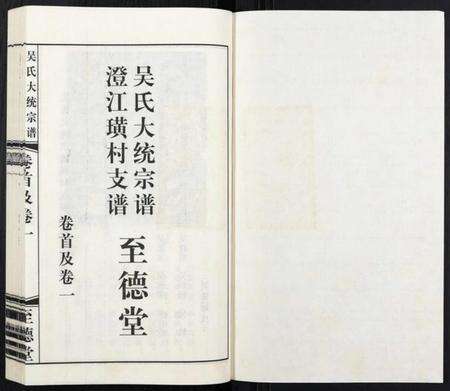 吴氏大统宗谱
澄江璜村支谱
至德堂
卷首及卷一
吴氏大统宗谱
卷首及卷一
至德堂